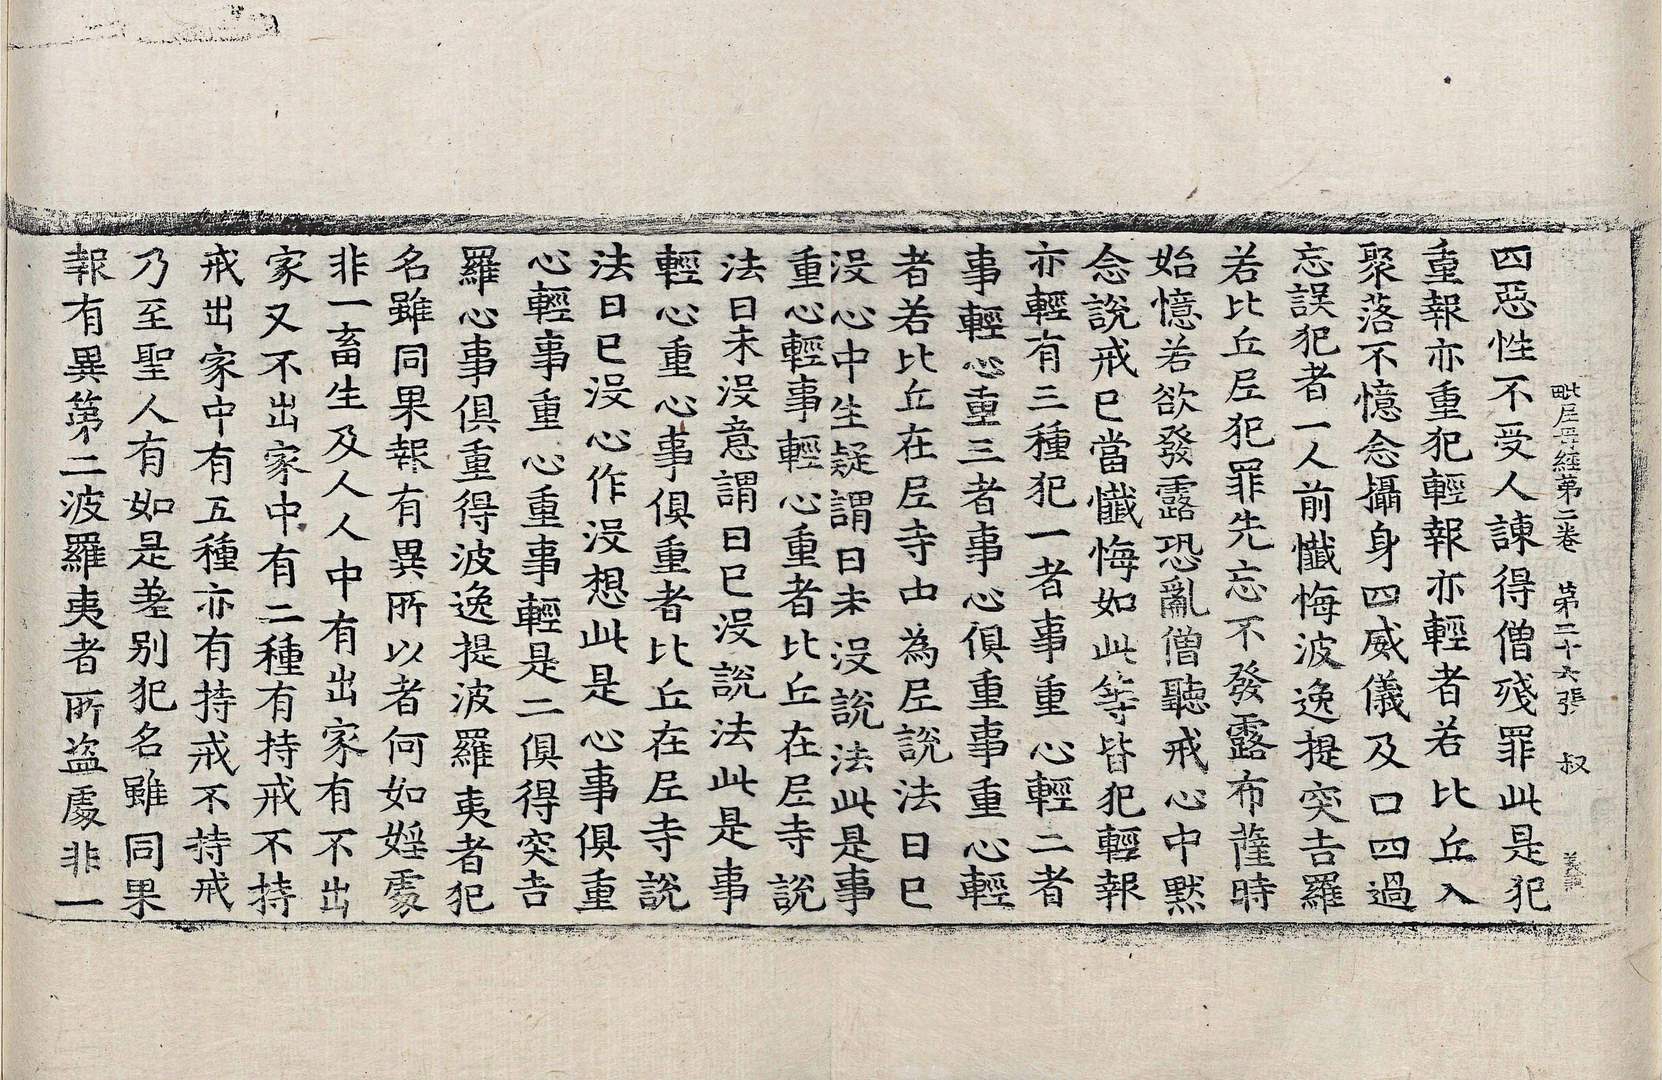 毗尼母經第二卷 第二十六張 叔
四惡性不受人諫得僧殘罪此是犯
重報亦重犯輕報亦輕者若比丘入
聚落不憶念攝身四威儀及口四過
忘誤犯者一人前懺悔波逸提突吉羅
若比丘尼犯罪先忘不發露布薩時
始憶若欲發露恐亂僧聽戒心中默
念說戒已當懺悔如此等皆犯輕報
亦輕有三種犯一者事重心輕二者
事輕心重三者事心俱重事重心輕
者若比丘在尼寺中為尼說法日已
沒心中生疑謂日未沒說法此是事
重心輕事輕心重者比丘在尼寺說
法日未沒意謂日已沒說法此是事
輕心重心事俱重者比丘在尼寺說
法日已沒心作沒想此是心事俱重
心輕事重心重事輕是二俱得突吉
羅心事俱重得波逸提波羅夷者犯
名雖同果報有異所以者何如婬處
非一畜生及人人中有出家有不出
家又不出家中有二種有持戒不持
戒出家中有五種亦有持戒不持戒
乃至聖人有如是差別犯名雖同果
報有異第二波羅夷者所盜處非一